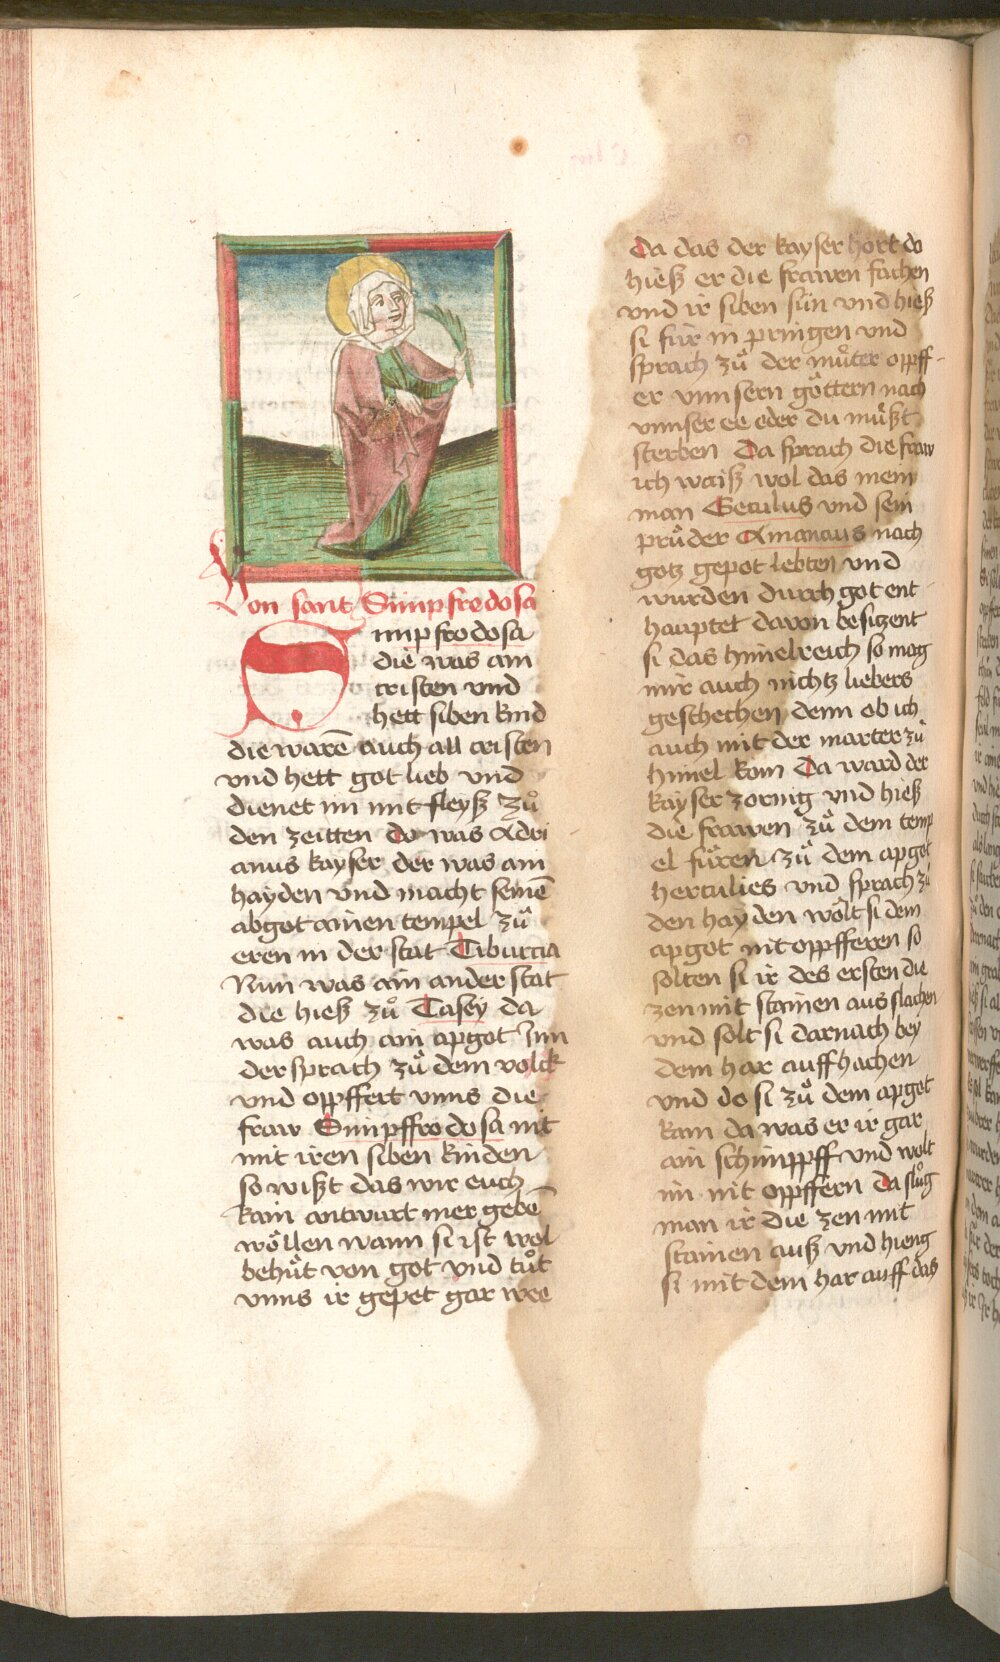 Von sant Simpfrodosa
Simpfrodosa
die was ain
cristen vnd
hett siben kind
die warē auch all cristen
vnd hett got lieb vnd
dienet im mit fleyſz zů
den zeitten do was Adri
anus kayser der was ain
hayden vnd macht seinē
abgot ainen tempel zů
eren in der stat Tiburtia
Nun was ain ander stat
die hieſz zů Casey da
was auch ain apgot Inn
der sprach zů dem volck
vnd oppffert vnns die
fraw Simpffrodosa nit
mit iren siben kinden
so wiſzt das wir euch
kain antwurt mer gebē
wöllen wann si ist wol
behůt von got vnd tůt
vnns ir gepet gar wee
Da das der kayser hort do
hieſz er die frawen fachen
vnd ir siben sün vnd hieſz
si für in pringen vnd
sprach zů der můter oppff-
er vnnsern göttern nach
vnnser ee oder du můſzt
sterben Da sprach die fraw
ich waiſz wol das mein
man Getulus vnd sein
průder Amancius nach
gotz gepot lebten vnd
wurden durch got ent
hauptet davon besitzent
si das himelreich so mag
mir auch nichtz liebers
geschechen denn ob ich
auch mit der marter zů
himel kom Da ward der
kayser zornig vnd hieſz
die frawen zů dem temp
el füren zů dem apgot
herculies vnd sprach zů
den hayden wölt si dem
apgot nit oppfferen so
solten si ir des ersten die
zen mit stainen aus slachen
vnd solt si darnach bey
dem har auff hachen
vnd do si zů dem apgot
kam da was er ir gar
ain schimppff vnd wolt
im nit oppffern Da slůg
man ir die zen mit
stainen auſz vnd hieng
si mit dem har auff das